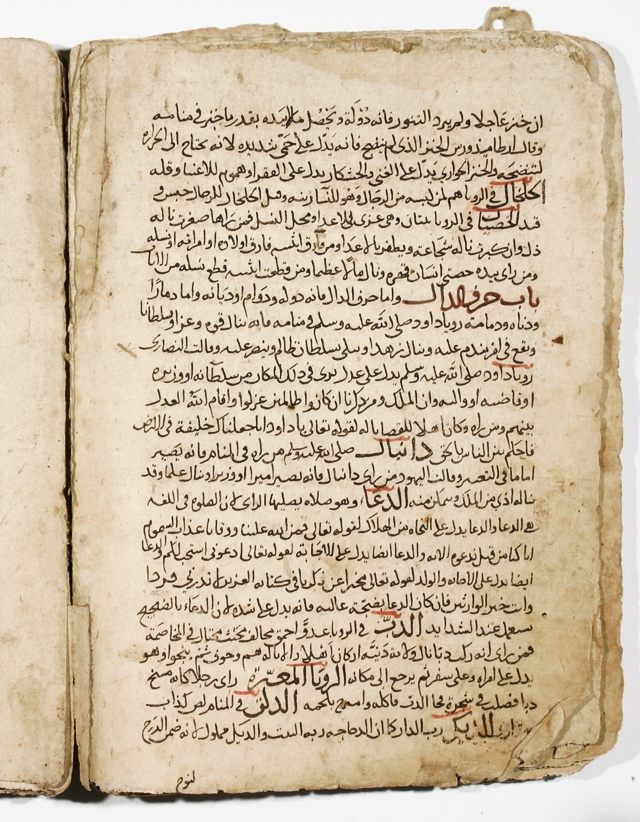 ان خبز عاجلا ولم يبرد التنور فانه دولة ويحصل مال بيده بقدر ما خبز في منامه
وقال ارطاميدورس الخبز الذي لم ينضج فانه يدل على حمى شديدة لانه يحتاج الى الحرارة
لتنضجه والخبز الحواري يدل على الغنى والخشكار يدل على الفقر وهموم للاغنيا وقله
الخلخال في الرويا هم لمن لبسه من الرجال وهو للنسا زينه وقيل الخلخال للرجال حبس و
قيد الخصيتان في الرويا بنتان وهي عزى للاعدا ومحل النسل فمن راها صغرت ناله
ذل وان كبرت ناله شجاعة ويظفر بالاعدا ومن فارق انثييه فارق اولاده او امراته او نسله
ومن راى بيده خصيتي انسان قهره ونال مالا عظيما ومن قطعت انثييه قطع نسله من الاناث
باب حرف الدال واما حرف الدال فانه دوله ودوام او ديانه واما دمارا
ودناه ودمامة رويا داود صلى الله عليه وسلم في منامه فانه ينال قوه وعزا وسلطانا
ويقع في امر يندم عليه وينال زهدا ويبتلى بسلطان ظالم وينصر عليه وقالت النصارى
رويا داود صلى الله عليه وسلم يدل على عدل يرى في ذلك المكان من سلطانه او وزيره
او قاضيه او واليه وان الملك ومن كانا ان كانوا ظالمين عزلوا واقام الله العدل
بينهم ومن راه وكان اهلا للقضا ناله لقوله تعالى يا داود انا جعلناك خليفة في الارض
فاحكم بين الناس بالحق دانيال صلى الله عليه وسلم من راه في المنام فانه يصير
اماما في التعبير وقالت اليهود من راى دانيال فانه يصير اميرا او وزيرا وينال علما وقد
ناله اذى من الملك ويتمكن منه الدعا وهو صلاة يصليها الراى لان الصلوة في اللغه
هي الدعا والدعا يدل على النجاه من الهلاك لقوله تعالى فمن الله علينا ووقانا عذاب السموم
انا كنا من قبل ندعوه الايه والدعا ايضا يدل على الاجابة لقوله تعالى ادعوني استجب لكم والدعا
ايضا يدل على الاجابه والولد لقوله تعالى مخبرا عن زكريا في كتابه العزيز لا تذرني فردا
وانت خير الوارثين فان كان الدعا بضجة عاليه فانه يدل على شده لان الدعاء بالضجيج
يستعمل عند الشدايد الدب في الرويا عدو احمق مخالف مخنث محتال في المخاصمة
فمن راى انه ركب دبا نال ولاية دنية ان كان اهلا والا ناله هم وخوف ثم ينجو وهو
يدل على امراه وعلى سفر ثم يرجع الى مكانه الرويا المعبرة راى رجل كانه مسخ
دبا فصلب في شجرة فجا الدب فاكله الدلق في المنام لص كذاب
الديك رب الدار كما ان الدجاجه ربة البيت والديك مملوك لانه ضمن الدرج
لنوح